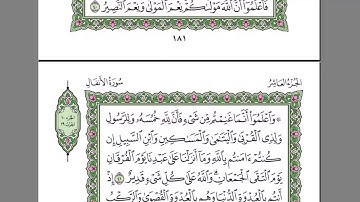 فَاعْلَمُوا أَنَّ اللَّهَ مَوْلَاكُمْ نِعْمَ الْمَوْلَى وَنِعْمَ النَّصِيرُ ۝٤٠
١٨١
الجزء العاشر سورة الأنفال
۞ وَاعْلَمُوا أَنَّمَا غَنِمْتُم مِّن شَيْءٍ فَأَنَّ لِلَّهِ خُمُسَهُ وَلِلرَّسُولِ
وَلِذِي الْقُرْبَى وَالْيَتَامَى وَالْمَسَاكِينِ وَابْنِ السَّبِيلِ إِن
كُنتُمْ ءَامَنتُم بِاللَّهِ وَمَا أَنزَلْنَا عَلَى عَبْدِنَا يَوْمَ الْفُرْقَانِ
يَوْمَ الْتَقَى الْجَمْعَانِ وَاللَّهُ عَلَى كُلِّ شَيْءٍ قَدِيرٌ ۝٤١ إِذْ
أَنتُم بِالْعُدْوَةِ الدُّنْيَا وَهُم بِالْعُدْوَةِ الْقُصْوَى وَالرَّكْبُ